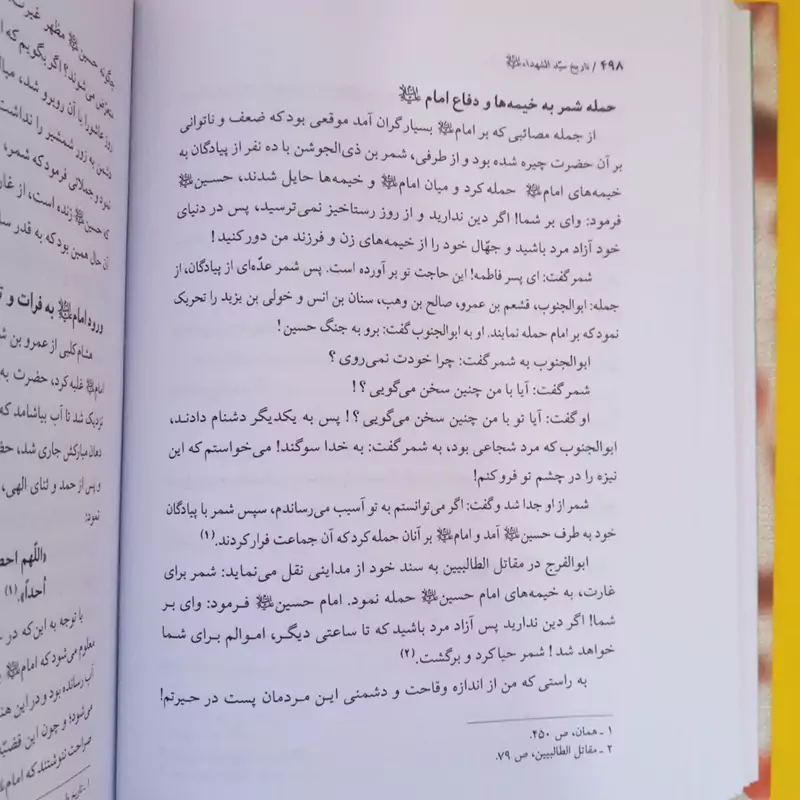 ۴۹۸ / تاریخ سیّد الشهداء ﷷ
حمله شمر به خیمه‌ها و دفاع امام ﷷ
از جمله مصائبی که بر امام بسیار گران آمد موقعی بود که ضعف و ناتوانی
بر آن حضرت چیره شده بود و از طرفی، شمر بن ذی‌الجوشن با ده نفر از پیادگان به
خیمه‌های امام حمله کرد و میان امام و خیمه‌ها حایل شدند، حسین
فرمود: وای بر شما! اگر دین ندارید و از روز رستاخیز نمی‌ترسید، پس در دنیای
خود آزاد مرد باشید و جهّال خود را از خیمه‌های زن و فرزند من دور کنید!
شمر گفت: ای پسر فاطمه! این حاجت تو بر آورده است. پس شمر عدّه‌ای از پیادگان، از
جمله: ابوالجنوب، قشعم بن عمرو، صالح بن وهب، سنان بن انس و خولی بن یزید را تحریک
نمود که بر امام حمله نمایند. او به ابوالجنوب گفت: برو به جنگ حسین!
ابوالجنوب به شمر گفت: چرا خودت نمی‌روی؟
شمر گفت: آیا با من چنین سخن می‌گویی؟!
او گفت: آیا تو با من چنین سخن می‌گویی؟! پس به یکدیگر دشنام دادند،
ابوالجنوب که مرد شجاعی بود، به شمر گفت: به خدا سوگند! می‌خواستم که این
نیزه را در چشم تو فرو کنم!
شمر از او جدا شد و گفت: اگر می‌توانستم به تو آسیب می‌رساندم، سپس شمر با پیادگان
خود به طرف حسین آمد و امام بر آنان حمله کرد که آن جماعت فرار کردند.(۱)
ابوالفرج در مقاتل الطالبیین به سند خود از مداینی نقل می‌نماید: شمر برای
غارت، به خیمه‌های امام حسین حمله نمود. امام حسین فرمود: وای بر
شما! اگر دین ندارید پس آزاد مرد باشید که تا ساعتی دیگر، اموالم برای شما
خواهد شد! شمر حیا کرد و برگشت.(۲)
به راستی که من از اندازه وقاحت و دشمنی این مردمان پست در حیرتم!
۱ ـ همان، ص ۲۵۰.
۲ ـ مقاتل الطالبیین، ص ۷۹.
چگونه حسین مظهر غیرت
متعرض می‌شوند؟ اگر بگویم که
روز عاشورا با آن روبرو شد، مبال
دشمن به زور شمشیر را نداشت
نمود و جملاتی فرمود که شمر،
که حسین زنده است، از غار
آن حال همین بود که به قدر سا
ورود امام به فرات و
هشام کلبی از عمرو بن ش
امام غلبه کرد، حضرت به
نزدیک شد تا آب بیاشامد که
دهان مبارکش جاری شد، حض
و پس از حمد و ثنای الهی،
نمود:
«اللّهم احص
أحداً».(۱)
با توجه به این که در
معلوم می‌شود که امام
آب رسانده بود و در این هن
می‌شود؛ و چون این قضیّه
صراحت ننوشتند که امام